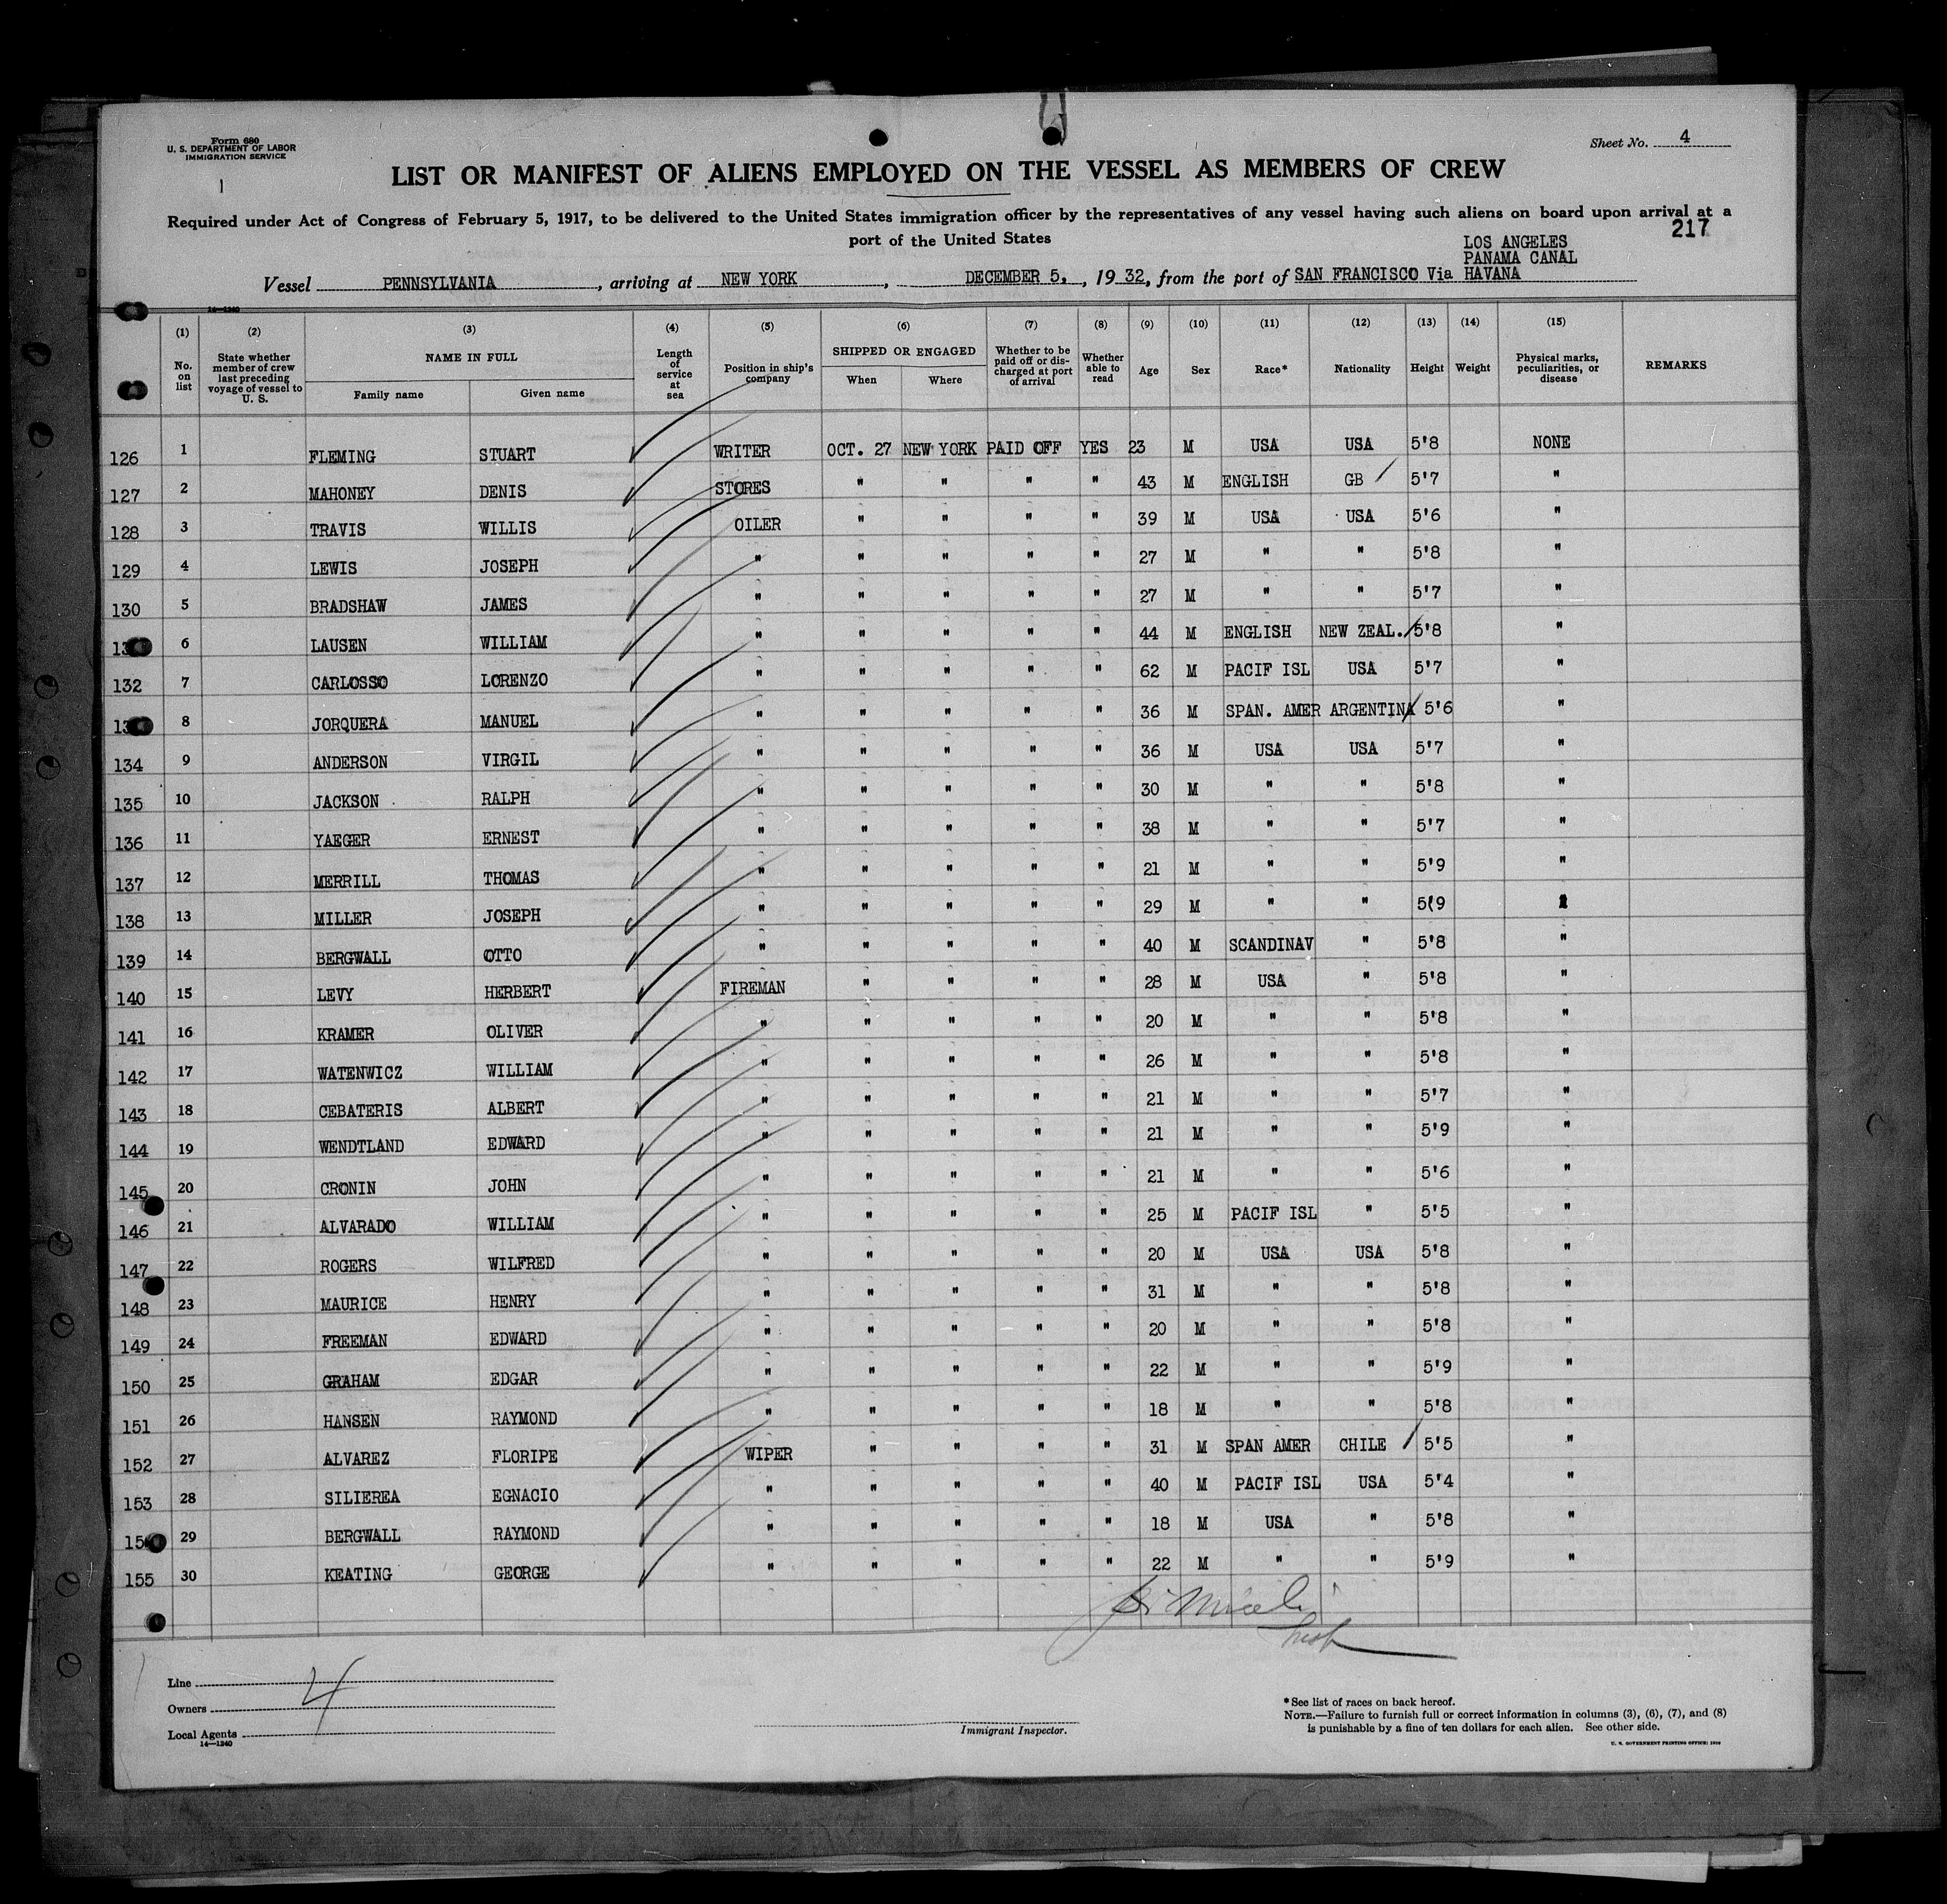 Form 680
U. S. DEPARTMENT OF LABOR
IMMIGRATION SERVICE
Sheet No. 4
LIST OR MANIFEST OF ALIENS EMPLOYED ON THE VESSEL AS MEMBERS OF CREW
Required under Act of Congress of February 5, 1917, to be delivered to the United States immigration officer by the representatives of any vessel having such aliens on board upon arrival at a
port of the United States
217
LOS ANGELES
PANAMA CANAL
Vessel PENNSYLVANIA, arriving at NEW YORK, DECEMBER 5, 1932, from the port of SAN FRANCISCO Via HAVANA
14—1240
(1) (2) (3) (4) (5) (6) (7) (8) (9) (10) (11) (12) (13) (14) (15)
No. on list State whether member of crew last preceding voyage of vessel to U. S. NAME IN FULL Family name Given name Length of service at sea Position in ship's company SHIPPED OR ENGAGED When Where Whether to be paid off or discharged at port of arrival Whether able to read Age Sex Race* Nationality Height Weight Physical marks, peculiarities, or disease REMARKS
126 1 FLEMING STUART WRITER OCT. 27 NEW YORK PAID OFF YES 23 M USA USA 5'8 NONE
127 2 MAHONEY DENIS STORES " " " " 43 M ENGLISH GB 5'7 "
128 3 TRAVIS WILLIS OILER " " " " 39 M USA USA 5'6 "
129 4 LEWIS JOSEPH " " " " " 27 M " " 5'8 "
130 5 BRADSHAW JAMES " " " " " 27 M " " 5'7 "
13 6 LAUSEN WILLIAM " " " " " 44 M ENGLISH NEW ZEAL. 5'8 "
132 7 CARLOSSO LORENZO " " " " " 62 M PACIF ISL USA 5'7 "
13 8 JORQUERA MANUEL " " " " " 36 M SPAN. AMER ARGENTINA 5'6 "
134 9 ANDERSON VIRGIL " " " " " 36 M USA USA 5'7 "
135 10 JACKSON RALPH " " " " " 30 M " " 5'8 "
136 11 YAEGER ERNEST " " " " " 38 M " " 5'7 "
137 12 MERRILL THOMAS " " " " " 21 M " " 5'9 "
138 13 MILLER JOSEPH " " " " " 29 M " " 5(9
139 14 BERGWALL OTTO " " " " " 40 M SCANDINAV " 5'8 "
140 15 LEVY HERBERT FIREMAN " " " " 28 M USA " 5'8 "
141 16 KRAMER OLIVER " " " " " 20 M " " 5'8 "
142 17 WATENWICZ WILLIAM " " " " " 26 M " " 5'8 "
143 18 CEBATERIS ALBERT " " " " " 21 M " " 5'7 "
144 19 WENDTLAND EDWARD " " " " " 21 M " " 5'9 "
145 20 CRONIN JOHN " " " " " 21 M " " 5'6 "
146 21 ALVARADO WILLIAM " " " " " 25 M PACIF ISL " 5'5 "
147 22 ROGERS WILFRED " " " " " 20 M USA USA 5'8 "
148 23 MAURICE HENRY " " " " " 31 M " " 5'8 "
149 24 FREEMAN EDWARD " " " " " 20 M " " 5'8 "
150 25 GRAHAM EDGAR " " " " " 22 M " " 5'9 "
151 26 HANSEN RAYMOND " " " " " 18 M " " 5'8 "
152 27 ALVAREZ FLORIPE WIPER " " " " 31 M SPAN AMER CHILE 5'5 "
153 28 SILIEREA EGNACIO " " " " " 40 M PACIF ISL USA 5'4 "
15 29 BERGWALL RAYMOND " " " " " 18 M USA " 5'8 "
155 30 KEATING GEORGE " " " " " 22 M " " 5'9 "
Line
Owners
4
Local Agents
14—1240
Immigrant Inspector.
*See list of races on back hereof.
NOTE.—Failure to furnish full or correct information in columns (3), (6), (7), and (8)
is punishable by a fine of ten dollars for each alien. See other side.